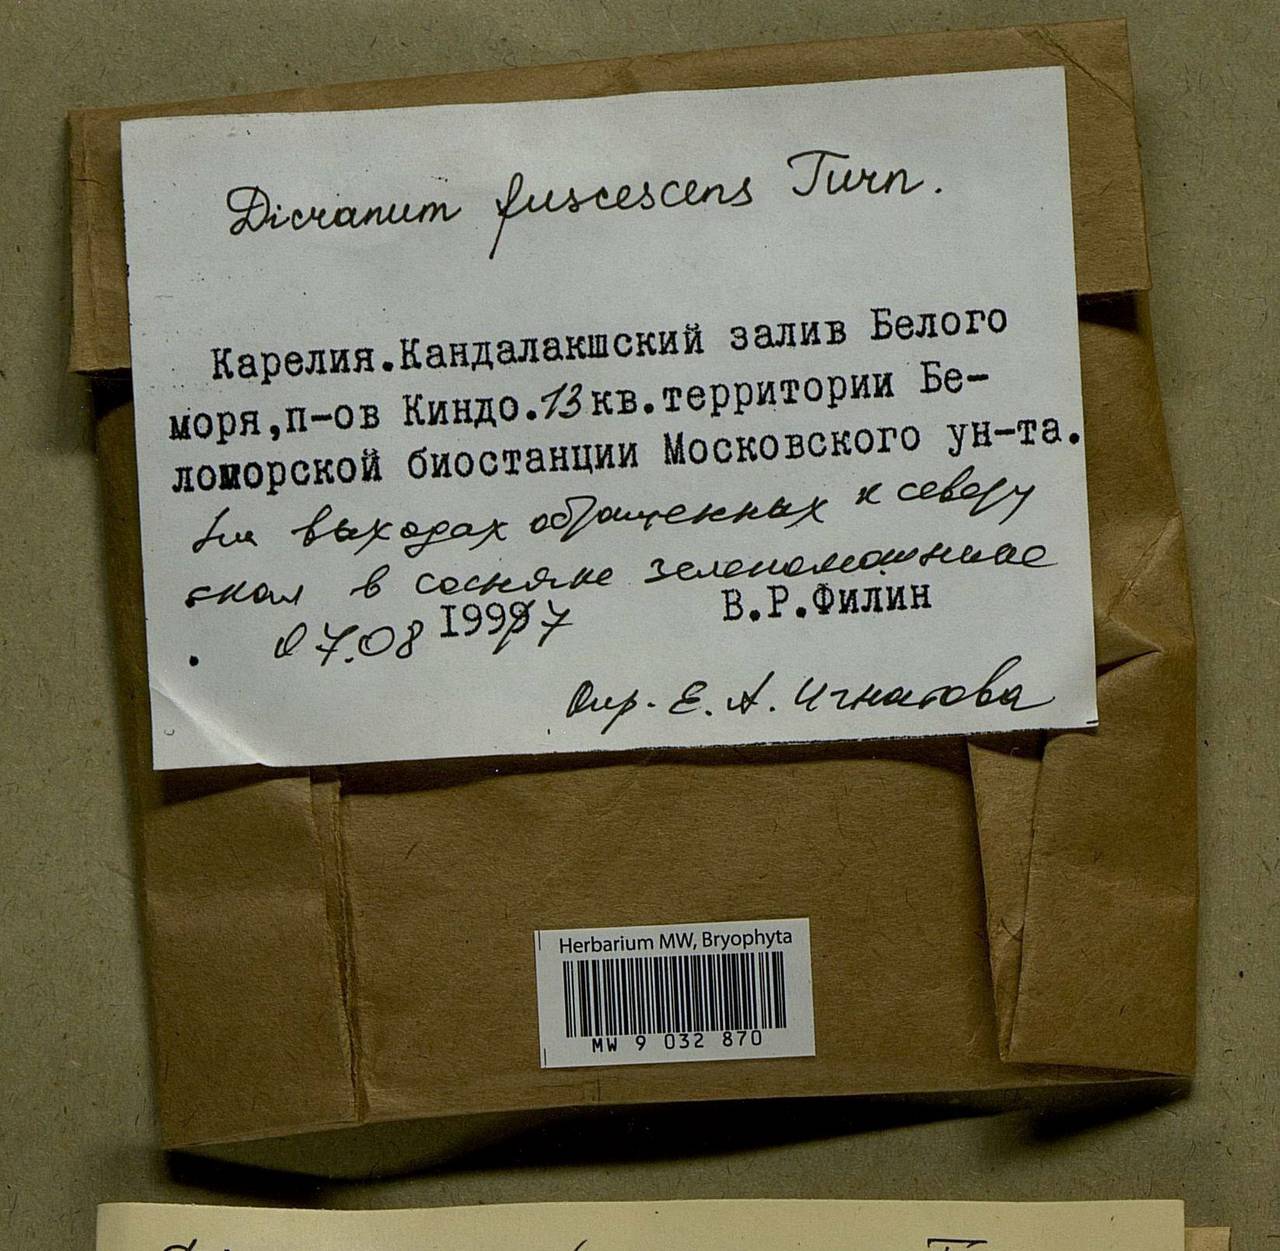 Dicranum fuscescens Turn.
Карелия.Кандалакшский залив Белого
моря,п-ов Киндо.13 кв.территории Бе-
ломорской биостанции Московского ун-та.
На выходах обращенных к северу
скал в сосняке зеленомошнике
07.08 1997 В.Р.Филин
Опр. Е. А. Игнатова
Herbarium MW, Bryophyta
MW 9 032 870